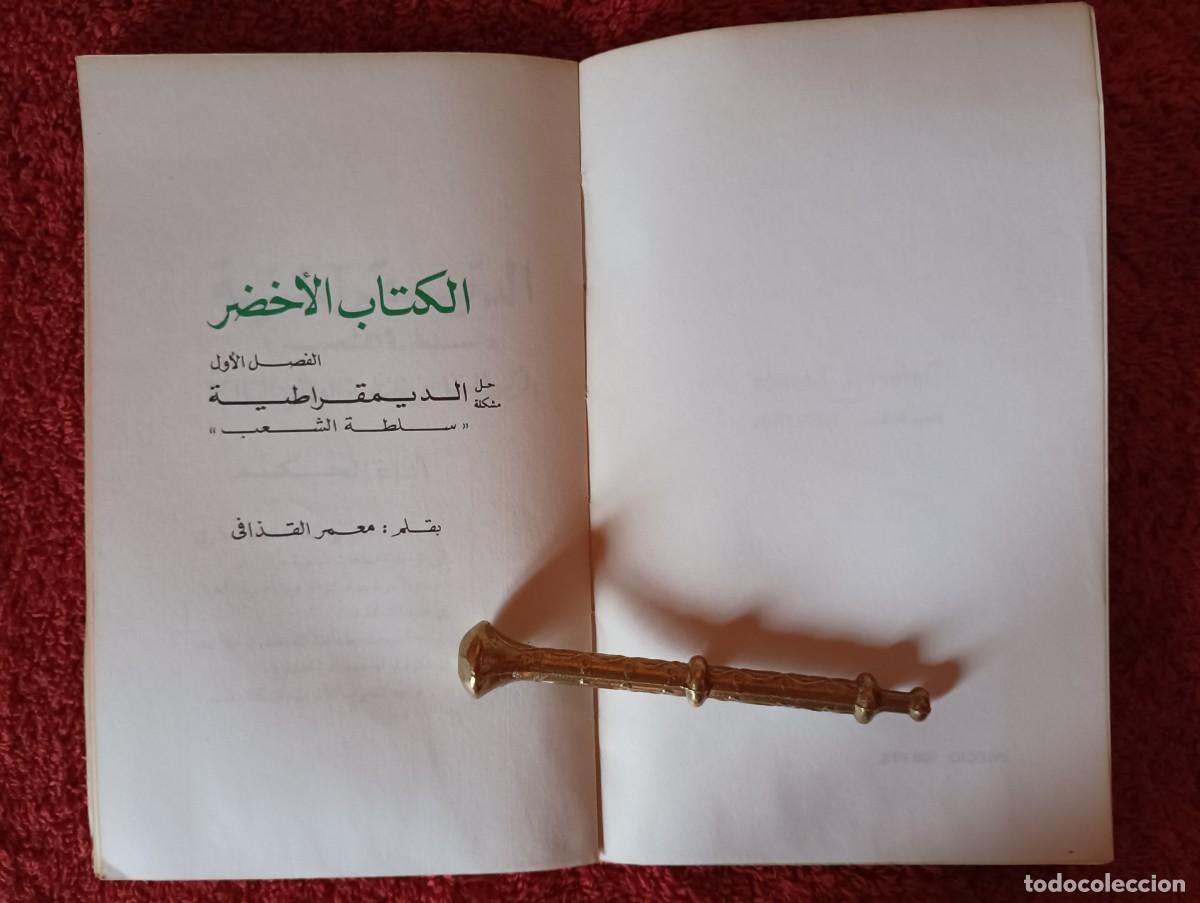 الكتاب الأخضر
الفصل الأول
حل مشكلة الديمقراطية
«سلطة الشعب»
بقلم : معمر القذافى
PRECIO: 100 PTS.
todocoleccion